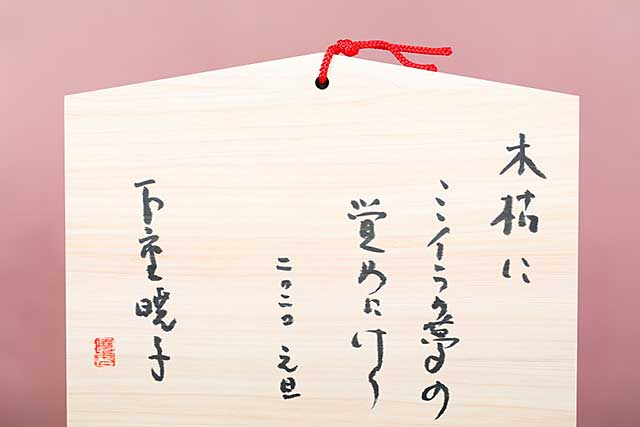 木枯に
ミイラの夢の
覚めにけり
二〇二〇 元旦
下重暁子